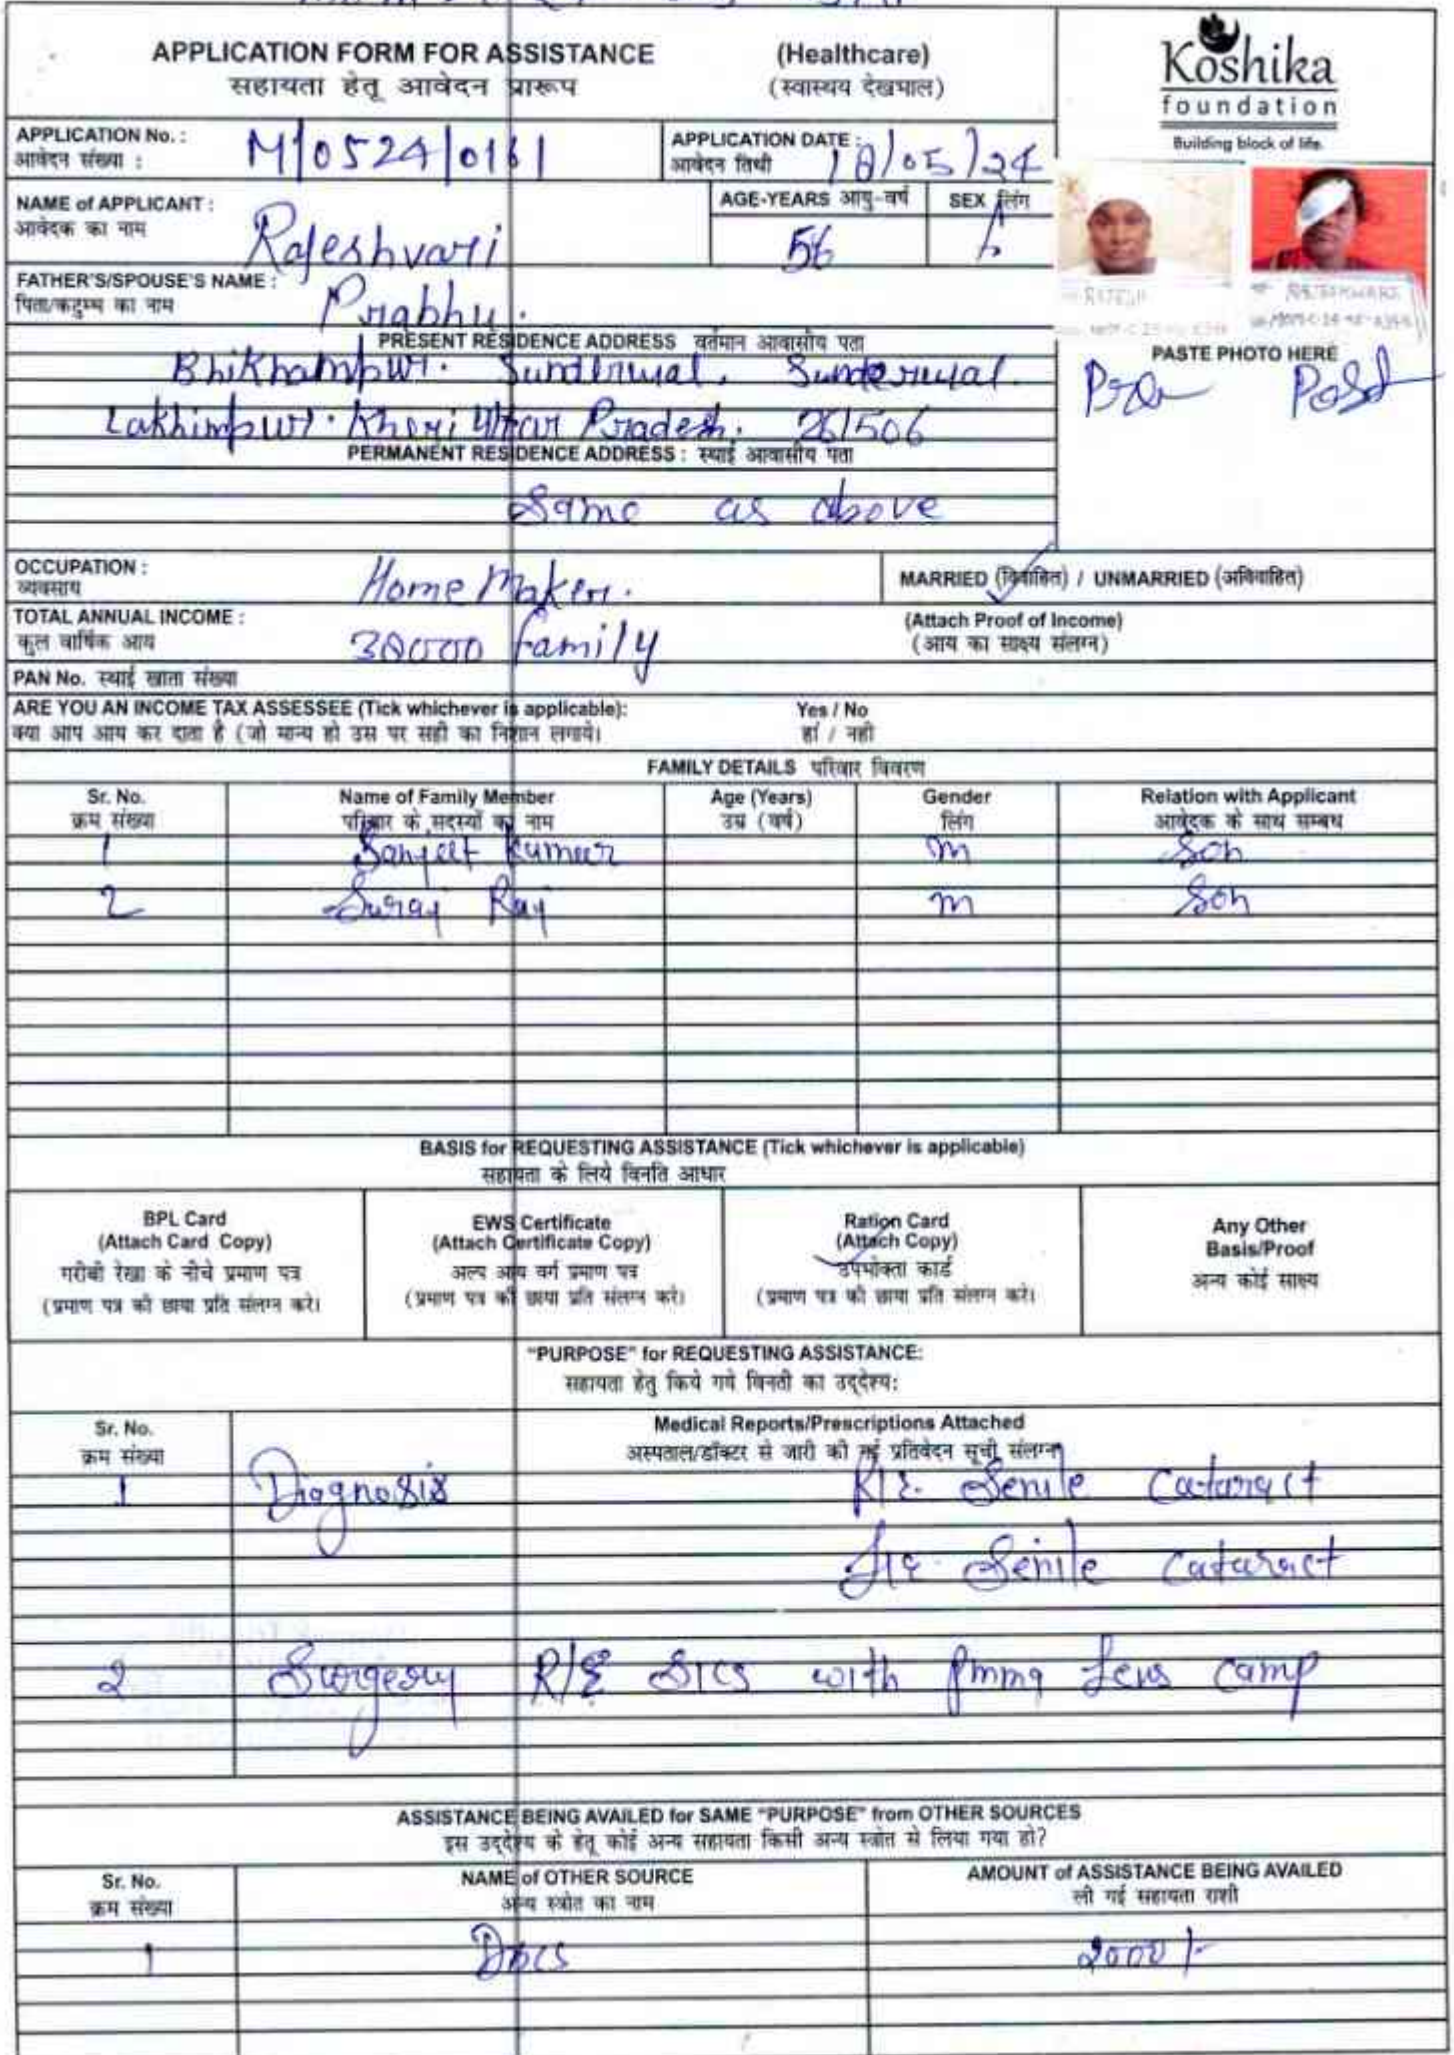 APPLICATION FORM FOR ASSISTANCE (Healthcare)
सहायता हेतू आवेदन प्रारूप (स्वास्थय देखभाल)
Koshika
foundation
Building block of life.
APPLICATION No. : M/0524/0161
आवेदन संख्या :
APPLICATION DATE : 18/05/24
आवेदन तिथी
NAME of APPLICANT : Rajeshvari
आवेदक का नाम
AGE-YEARS आयु-वर्ष 56
SEX लिंग
FATHER'S/SPOUSE'S NAME : Prabhu.
पिता/कटुम्ब का नाम
PRESENT RESIDENCE ADDRESS वर्तमान आवासीय पता
Bhikhampur. Sunderwal, Sunderwal.
Lakhimpur. Kheri Uttar Pradesh. 261506
PASTE PHOTO HERE
Pre Post
PERMANENT RESIDENCE ADDRESS : स्थाई आवासीय पता
Same as above
OCCUPATION : Home Maker.
व्यवसाय
MARRIED (विवाहित) / UNMARRIED (अविवाहित)
TOTAL ANNUAL INCOME : 30000 family
कुल वार्षिक आय
(Attach Proof of Income)
(आय का साक्ष्य संलग्न)
PAN No. स्थाई खाता संख्या
ARE YOU AN INCOME TAX ASSESSEE (Tick whichever is applicable): Yes / No
क्या आप आय कर दाता है (जो मान्य हो उस पर सही का निशान लगाये। हां / नही
FAMILY DETAILS परिवार विवरण
Sr. No. Name of Family Member Age (Years) Gender Relation with Applicant
क्रम संख्या परिवार के सदस्यों का नाम उम्र (वर्ष) लिंग आवेदक के साथ सम्बध
1 Sanjeet Kumar m Son
2 Suraj Raj m Son
BASIS for REQUESTING ASSISTANCE (Tick whichever is applicable)
सहायता के लिये विनति आधार
BPL Card
(Attach Card Copy)
गरीबी रेखा के नीचे प्रमाण पत्र
(प्रमाण पत्र की छाया प्रति संलग्न करे।
EWS Certificate
(Attach Certificate Copy)
अल्प आय वर्ग प्रमाण पत्र
(प्रमाण पत्र की छाया प्रति संलग्न करे।
Ration Card
(Attach Copy)
उपभोक्ता कार्ड
(प्रमाण पत्र की छाया प्रति संलग्न करे।
Any Other
Basis/Proof
अन्य कोई साक्ष्य
"PURPOSE" for REQUESTING ASSISTANCE:
सहायता हेतु किये गये विनती का उद्देश्य:
Sr. No. Medical Reports/Prescriptions Attached
क्रम संख्या अस्पताल/डॉक्टर से जारी की गई प्रतिवेदन सूची संलग्न
1 Diagnosis R/E Senile Cataract
L/E Senile Cataract
2 Surgery R/E SICS with pmma Lens camp
ASSISTANCE BEING AVAILED for SAME "PURPOSE" from OTHER SOURCES
इस उद्देश्य के हेतू कोई अन्य सहायता किसी अन्य स्त्रोत से लिया गया हो?
Sr. No. NAME of OTHER SOURCE AMOUNT of ASSISTANCE BEING AVAILED
क्रम संख्या अन्य स्त्रोत का नाम ली गई सहायता राशी
1 2000/-